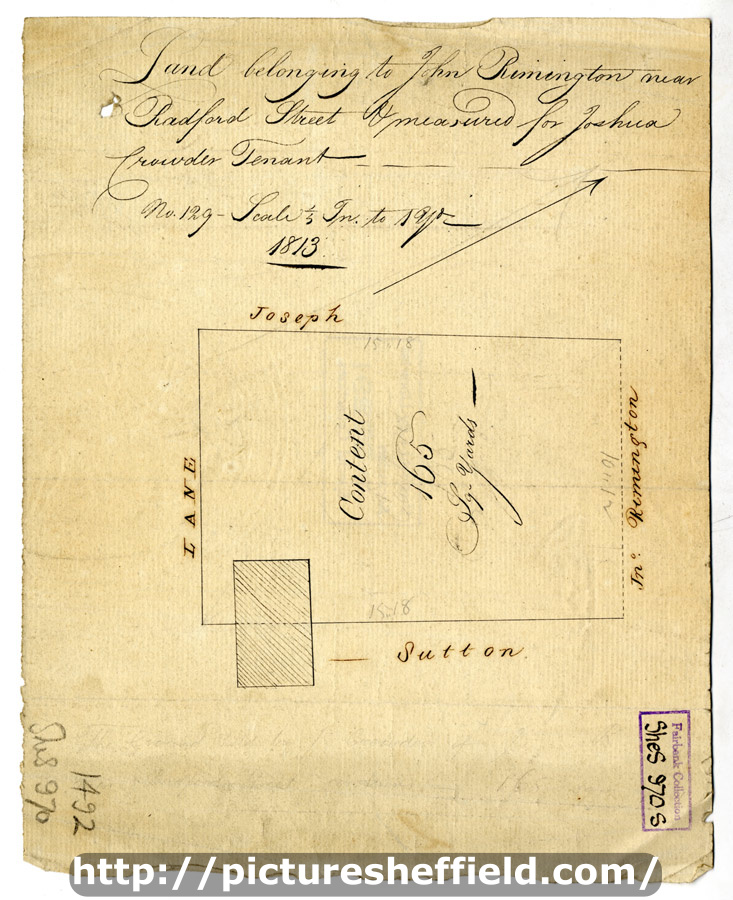 Land belonging to John Rimington near
Radford Street & measured for Joshua
Crowder Tenant
No. 129 - Scale ⅓ In. to 1 Yd
1813
Joseph
15..18
LANE
Content
165
Sq. Yards
10..12
Jnº Rimington
15..18
Sutton
Fairbank Collection
SheS 970 S
1492
SheS 970
http://picturesheffield.com/